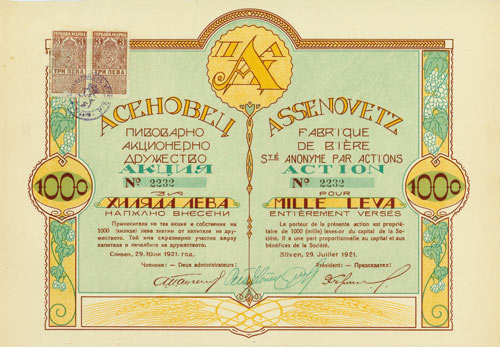 ГЕРБОВА МАРКА ГЕРБОВА МАРКА
3 3
ТРИ ЛЕВА ТРИ ЛЕВА
П А А
АСЕНОВЕЦ
ПИВОВАРНО
АКЦИОНЕРНО
ДРУЖЕСТВО
АКЦИЯ
№ 2232
ЗА
ХИЛЯДА ЛЕВА
НАПЪЛНО ВНЕСЕНИ
Приносителя на тая акция е собственик на
1000 (хиляда) лева златни от капитала на дру-
жеството. Той има съразмерно участие върху
имотите и печалбите на дружеството.
Сливен, 29. Юли 1921. год.
Членове: — Deux administrateurs:
ASSENOVETZ
FABRIQUE
DE BIÈRE
Sté ANONYME PAR ACTIONS
ACTION
№ 2232
POUR
MILLE LEVA
ENTIÈREMENT VERSÉS
Le porteur de la présente action est proprié-
taire de 1000 (mille) leves-or du capital de la So-
ciété. Il a une part proportionnelle au capital et aux
bénéfices de la Société.
Sliven, 29. Juillet 1921.
Président: — Председатель:
1000
1000